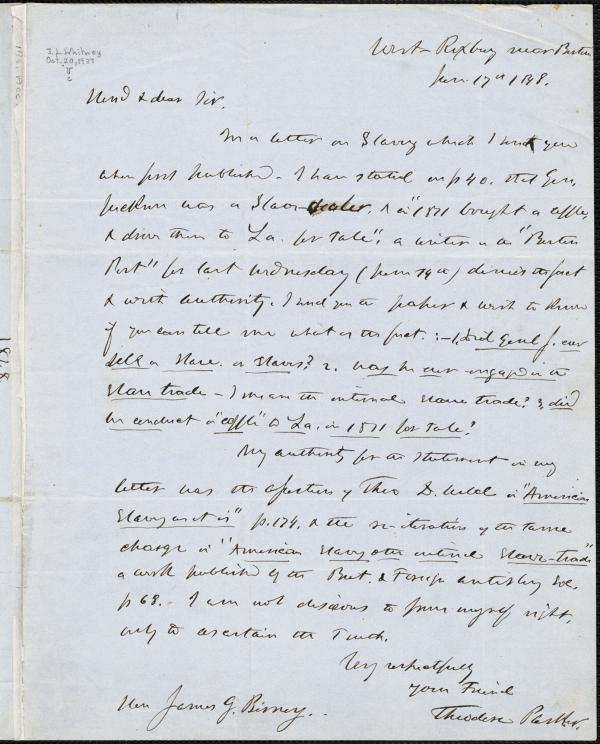 J. L. Whitney
Oct. 20, 1937
West Roxbury near Boston
June 17th 1848.
Hon'd & dear Sir.
In a letter on Slavery which I sent you
when first published - I have stated on p 40. that Gen.
Jackson was a Slave-dealer, & in "1811 bought a coffle,
& drove them to La. for sale", a writer in the "Boston
Post" for last Wednesday (June 14th) denies the fact
& with authority. I send you the paper & wish to know
if you can tell me what is the fact. :- 1, did Genl J. ever
sell a Slave. or Slaves? 2. was he ever engaged in the
Slave trade - I mean the internal slave trade? 3, did
he conduct a "coffle" to La. in 1811 for sale?
My authority for the statement in my
letter was the assertion of Theo D. Weld in "American
Slavery as it is" p. 174. & the re-iteration of the same
charge in "American Slavery & the internal Slave-trade"
a work published by the Brit. & Foreign antislavery Soc.
p 68. - I am not desirous to prove myself right,
only to ascertain the Truth.
Very respectfully
Your Friend
Theodore Parker.
Hon James G. Birney.
1848